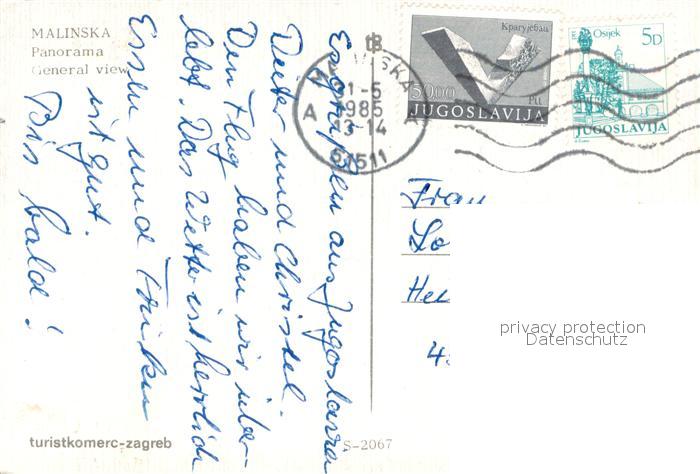 MALINSKA
Panorama
General view
Es grüßen aus Jugoslawien
Dieter und Christel.
Den Flug haben wir über-
lebt. Das Wetter ist herrlich
Essen und Trinken
ist gut.
Bis bald!
turistkomerc-zagreb
S-2067
1-5
1985
13-14
A
51511
Крагујевац
5000
Din
JUGOSLAVIJA
Osijek
5D
JUGOSLAVIJA
Frau
privacy protection
Datenschutz